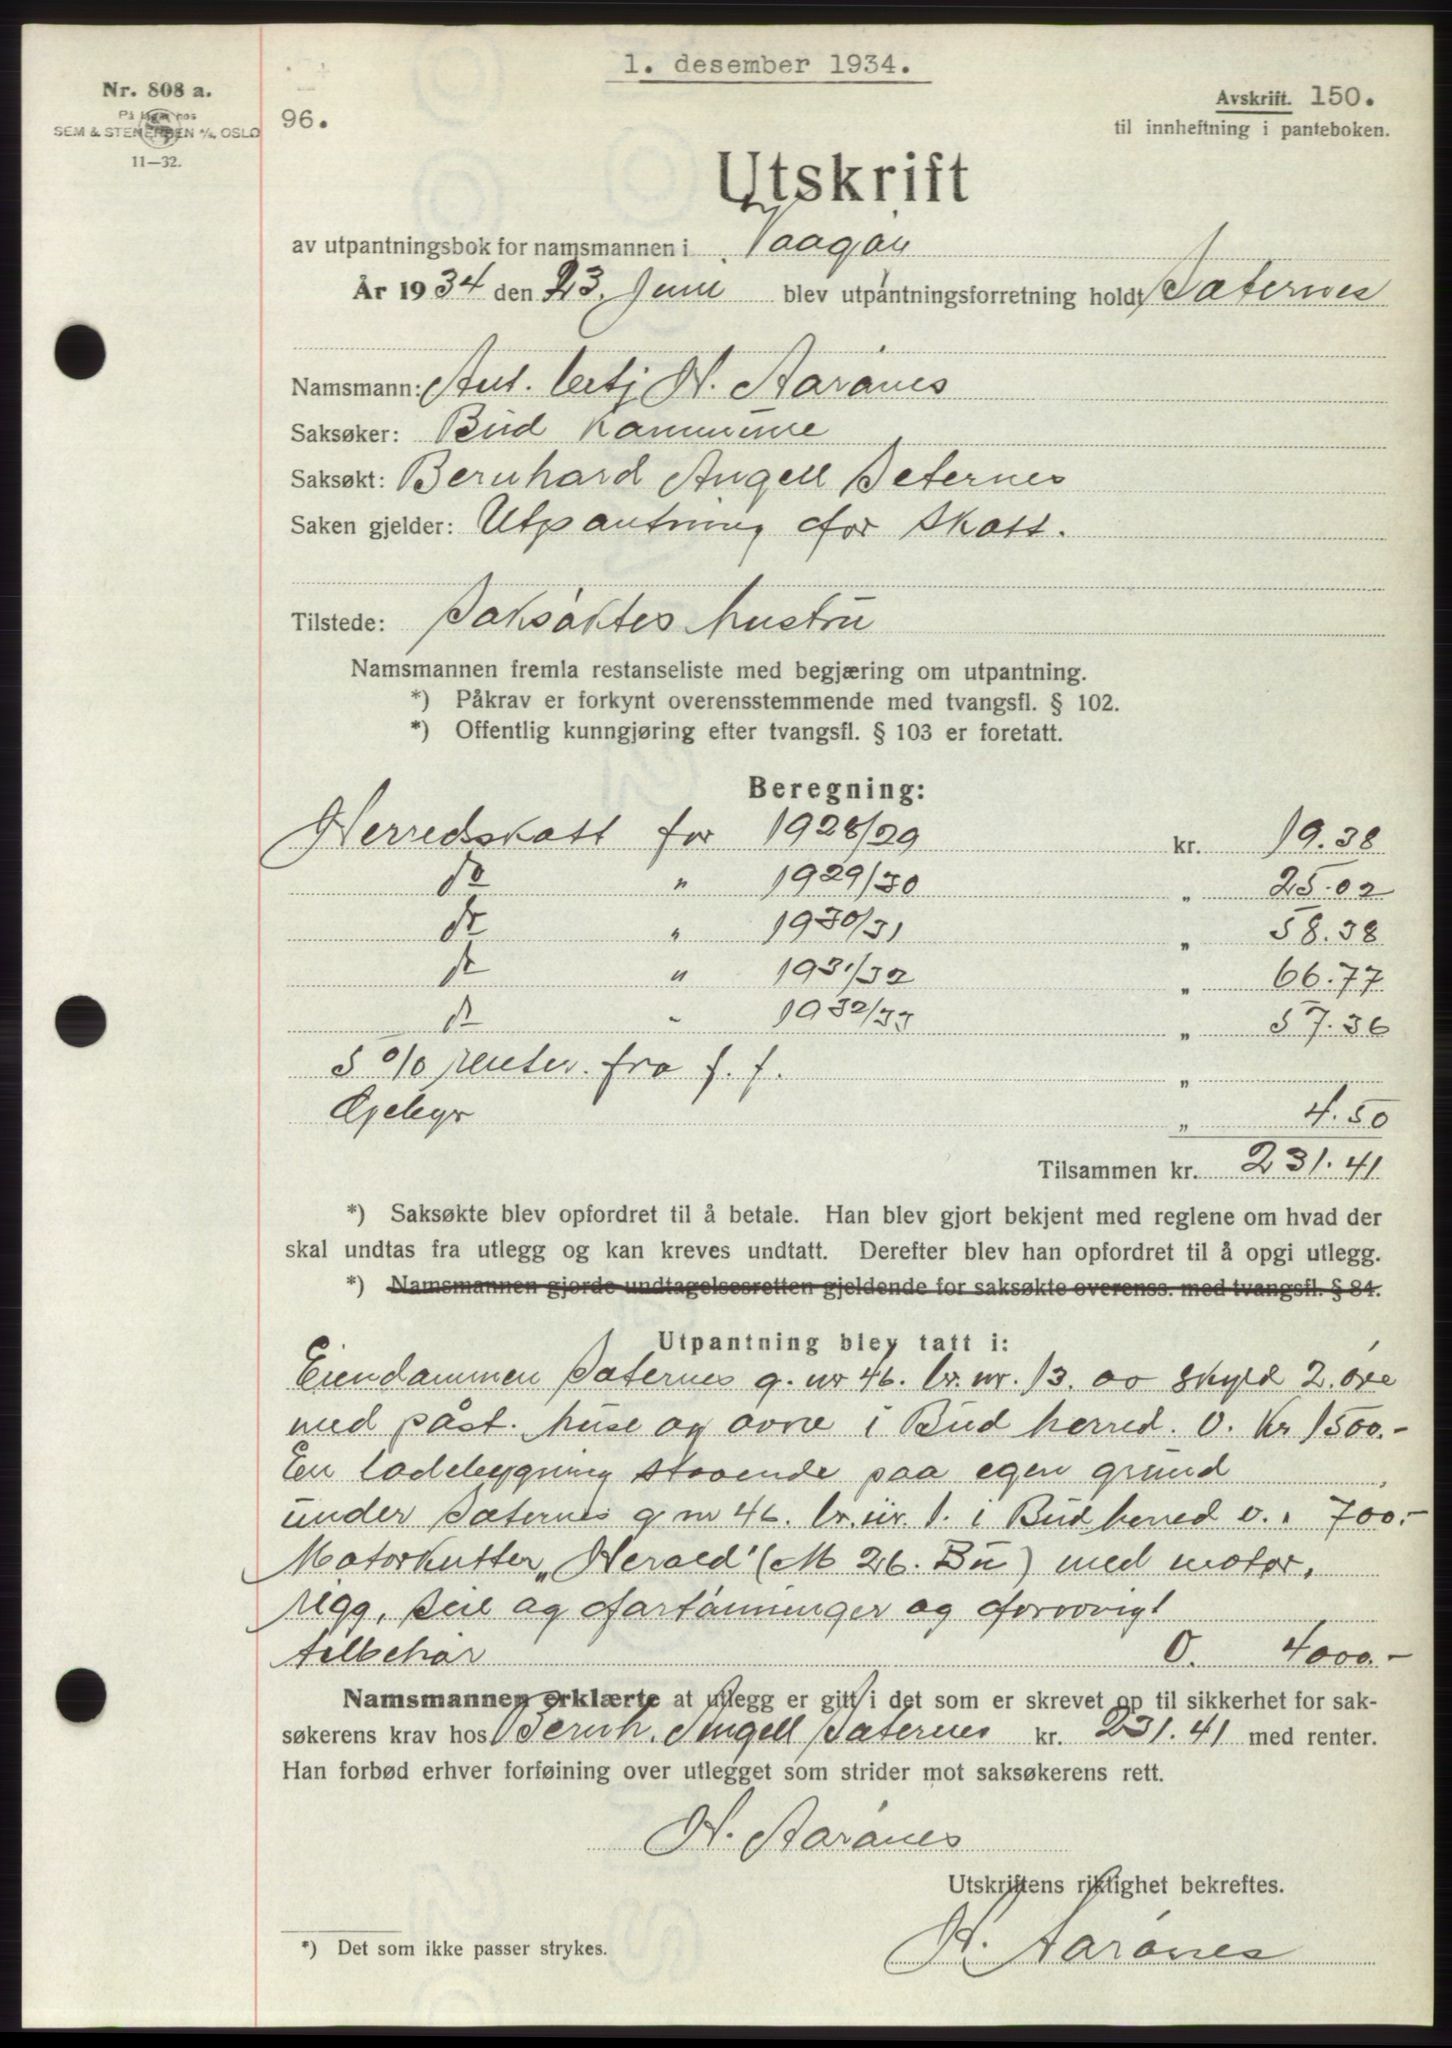 1. desember 1934.
Nr. 808 a.
På lager hos
SEM & STENERSEN A/S, OSLO
11—32.
96.
Avskrift. 150.
til innheftning i panteboken.
Utskrift
av utpantningsbok for namsmannen i Vaagøy
År 1934 den 23. Juni blev utpantningsforretning holdt Sæternes
Namsmann: Aut. betj N. Aarønes
Saksøker: Bud Kommune
Saksøkt: Bernhard Angell Seternes
Saken gjelder: Utpantning for skatt.
Tilstede: Saksøktes hustru
Namsmannen fremla restanseliste med begjæring om utpantning.
*) Påkrav er forkynt overensstemmende med tvangsfl. § 102.
*) Offentlig kunngjøring efter tvangsfl. § 103 er foretatt.
Beregning:
Herredskatt for 1928/29 kr. 19.38
do " 1929/30 " 25.02
do " 1930/31 " 58.38
do " 1931/32 " 66.77
do " 1932/33 " 57.36
5 % renter fra f. f. "
Gebyr " 4.50
Tilsammen kr. 231.41
*) Saksøkte blev opfordret til å betale. Han blev gjort bekjent med reglene om hvad der
skal undtas fra utlegg og kan kreves undtatt. Derefter blev han opfordret til å opgi utlegg.
*) Namsmannen gjorde undtagelsesretten gjeldende for saksøkte overenss. med tvangsfl. § 84.
Utpantning blev tatt i:
Eiendammen Sæternes g. nr 46. br. nr. 13. av skyld 2. øre
med påst. huse og ovne i Bud herred. O. Kr 1500.-
En ladebygning staaende paa egen grund
under Sæternes g nr 46. br. nr. 1. i Bud herred o. " 700.-
Motorkutter „Herald" (M 26. Bu) med motor,
rigg, seil og fortøininger og forøvrigt
tilbehør O. 4000.-
Namsmannen erklærte at utlegg er gitt i det som er skrevet op til sikkerhet for sak-
søkerens krav hos Bernh. Angell Sæternes kr. 231.41 med renter.
Han forbød erhver forføining over utlegget som strider mot saksøkerens rett.
N. Aarønes
Utskriftens riktighet bekreftes.
N. Aarønes
*) Det som ikke passer strykes.